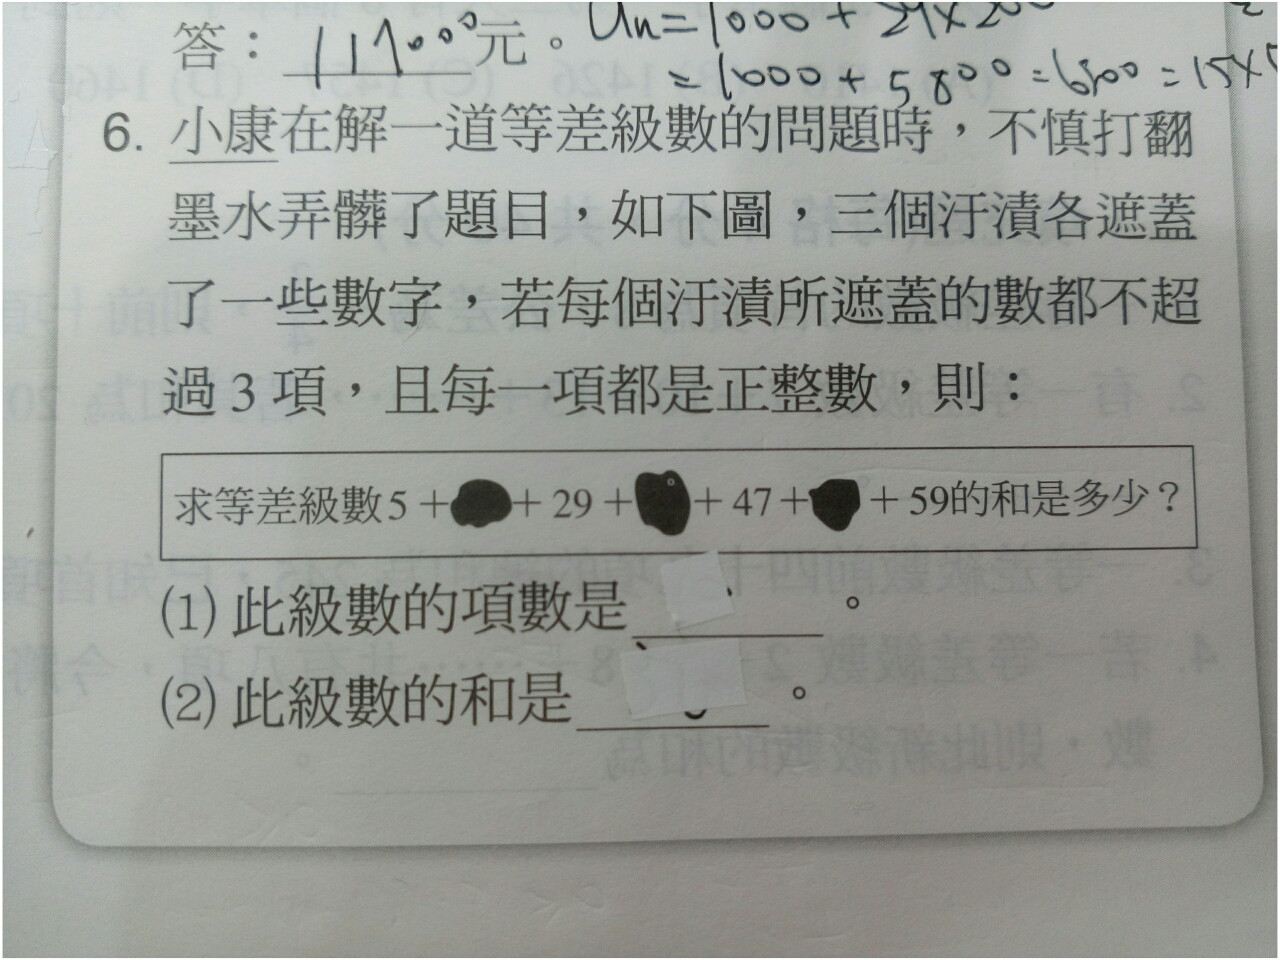 答：117000元。 Un=1000+29×200
=1000+5800=6800=15×
6. 小康在解一道等差級數的問題時，不慎打翻
墨水弄髒了題目，如下圖，三個汙漬各遮蓋
了一些數字，若每個汙漬所遮蓋的數都不超
過 3 項，且每一項都是正整數，則：
求等差級數5＋ ＋29＋ ＋47＋ ＋59的和是多少？
(1) 此級數的項數是 。
(2) 此級數的和是 。